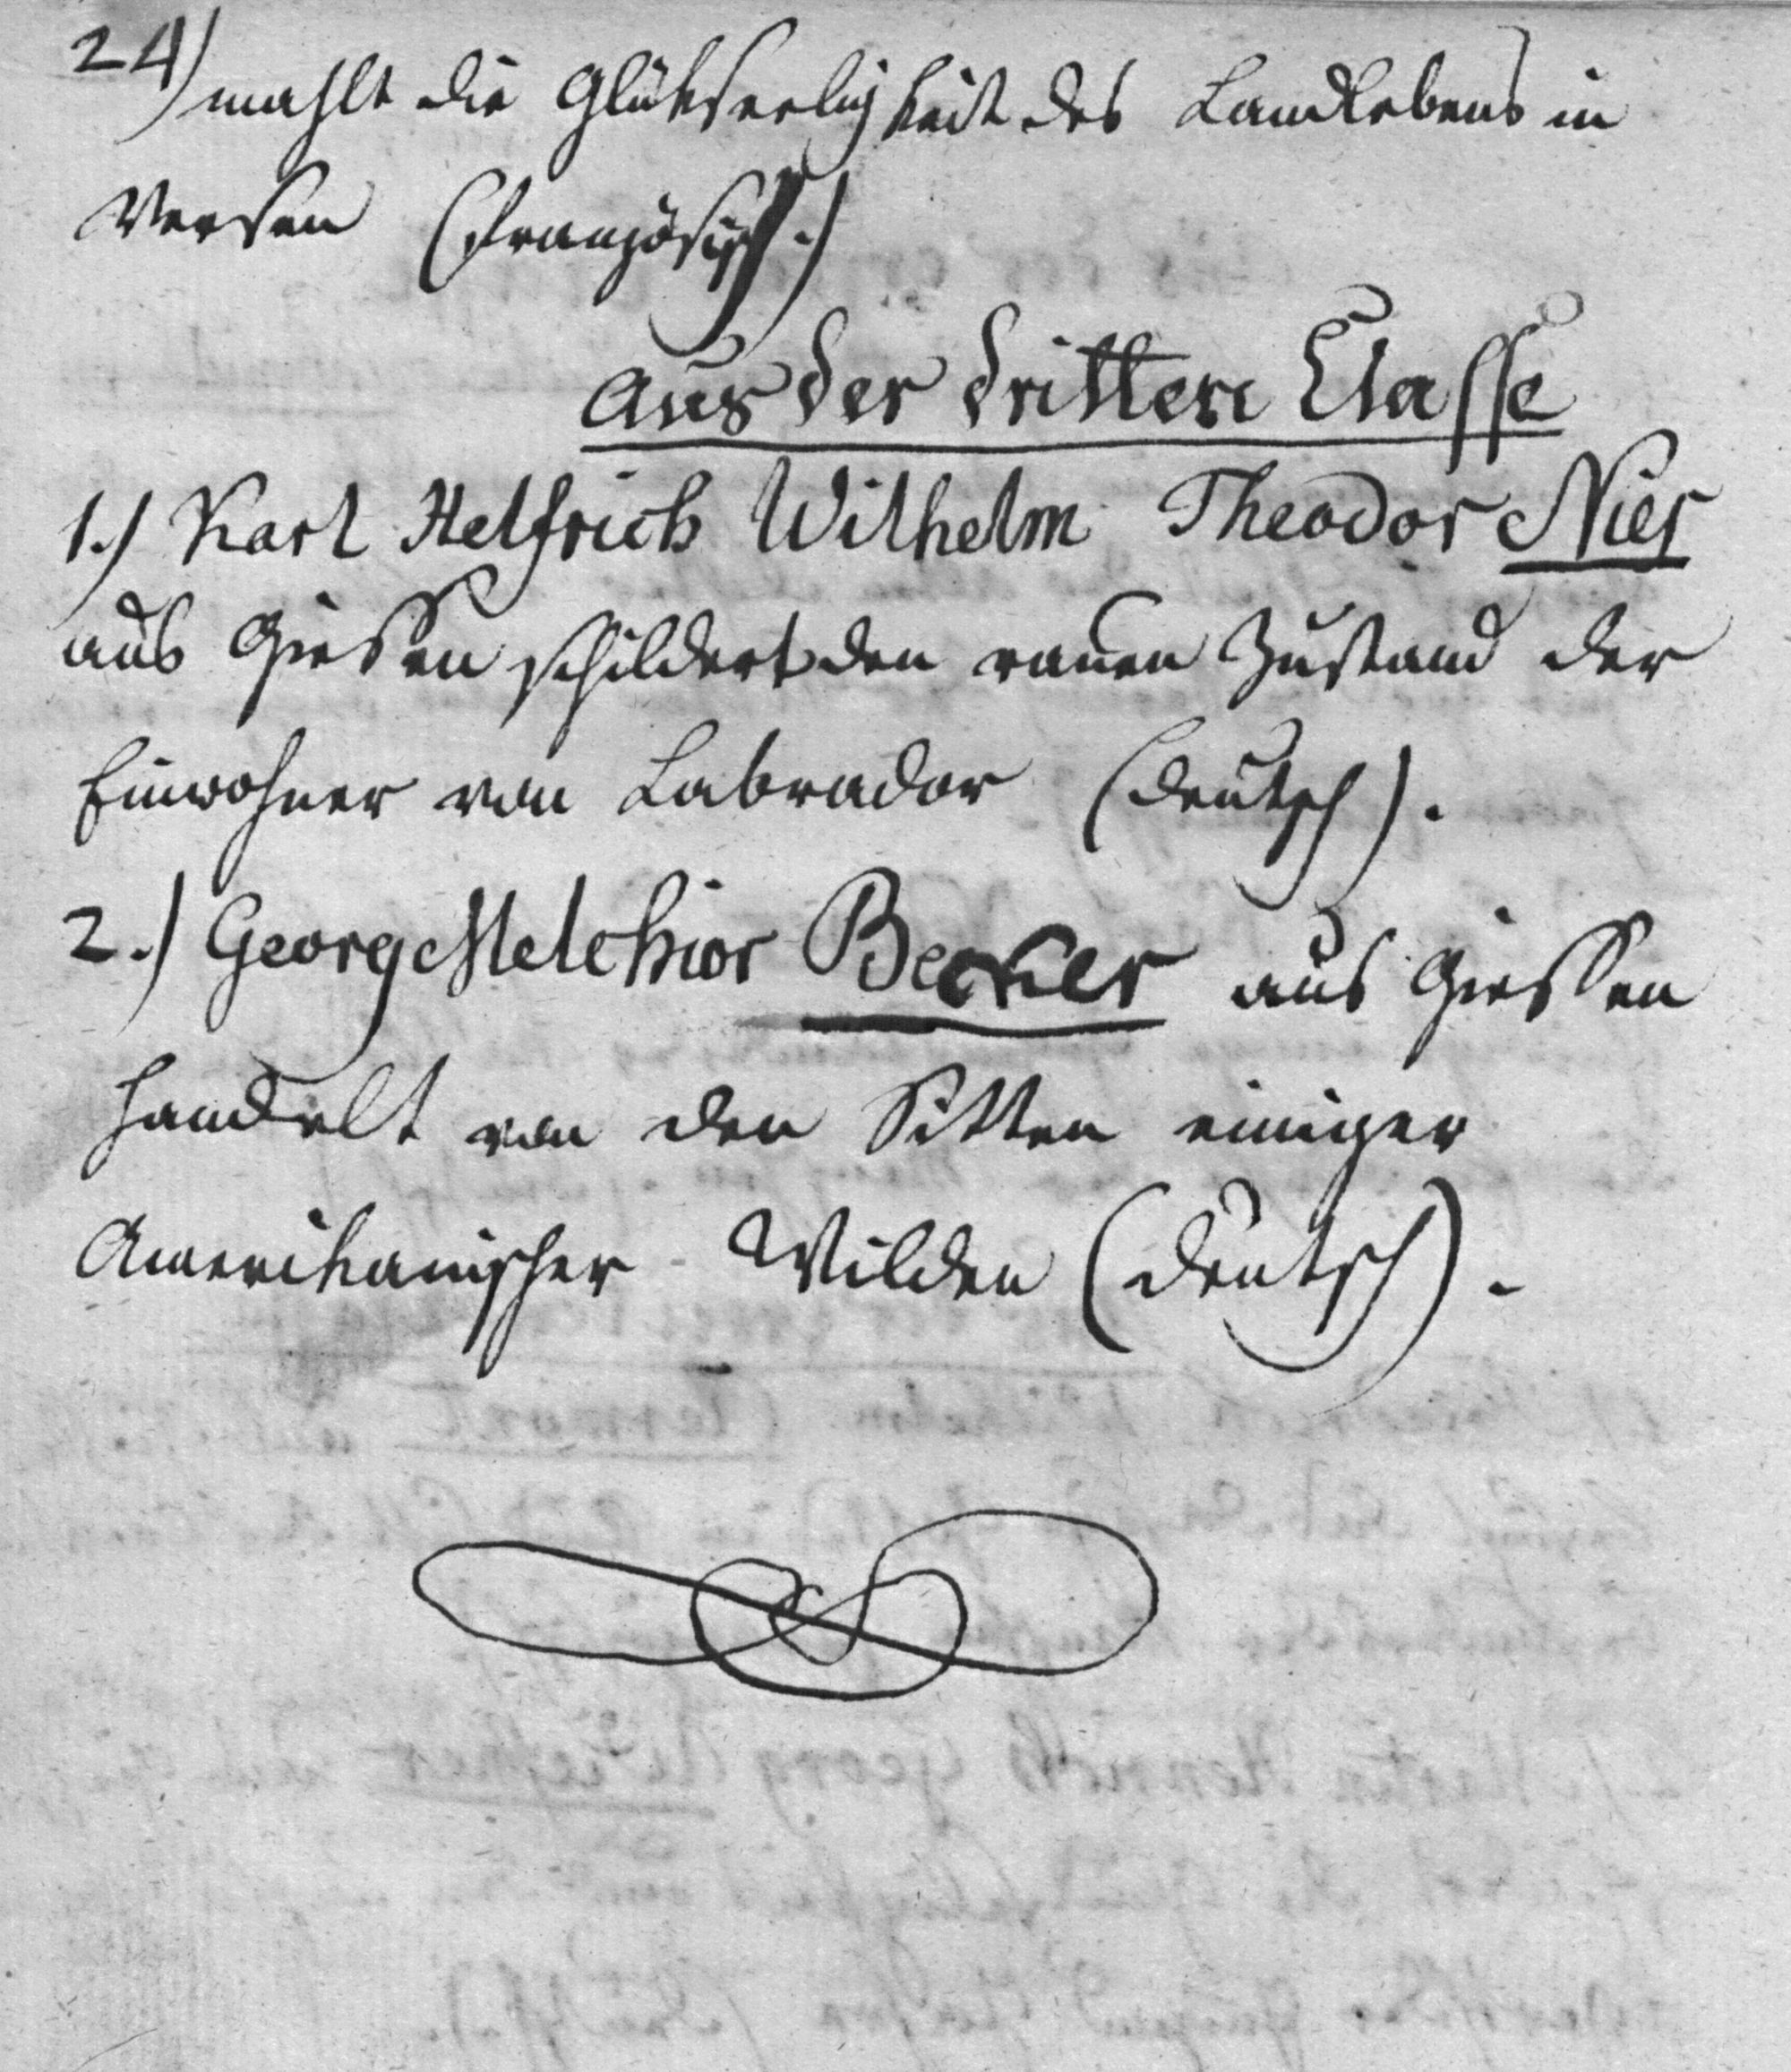 24)
mahlt die Glükseeligkeit des Landlebens in
Versen (Französisch.)
Aus der dritten Classe
1.) Karl Helfrich Wilhelm Theodor Nies
aus Giessen schildert den rauen Zustand der
Einwohner von Labrador (deutsch).
2.) Georg Melchior Becker aus Giessen
handelt von den Sitten einiger
Amerikanischer Wilden (deutsch).